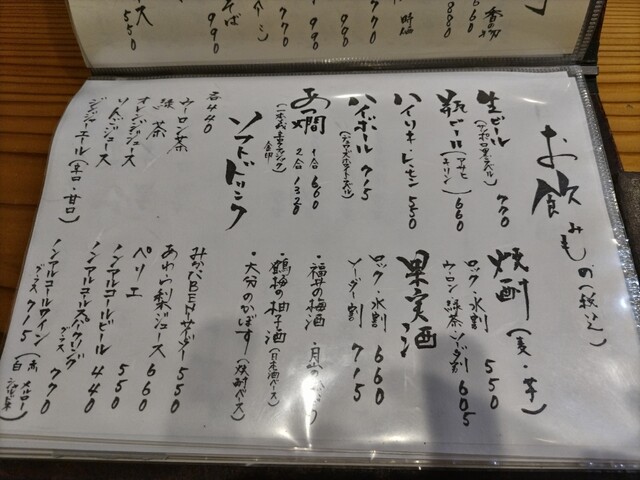 お飲みもの(税込)
生ビール 770
(サッポロ黒ラベル)
瓶ビール(アサヒ キリン) 660
ハイリキ・レモン 550
ハイボール 715
あつ燗 1合 660
2合 1320
ソフトドリンク
各440
ウーロン茶
緑茶
オレンジジュース
りんごジュース
ジンジャーエール(辛口・甘口)
焼酎(麦・芋)
ロック・水割 550
ウーロン・緑茶・ソーダ割 605
果実酒
ロック・水割 660
ソーダー割 715
・福井の梅酒
・鶴梅の柚子酒(日本酒ベース)
・大分のかぼす(焼酎ベース)
みかんBENサイダー 550
あわら梨ジュース 660
ペリエ 550
ノンアルコールビール 440
ノンアルコールスパークリング グラス 770
ノンアルコールワイン グラス 715
(赤 メルロー
白
香の物
660
880
時価
990
990
770
そば
990
ス 550